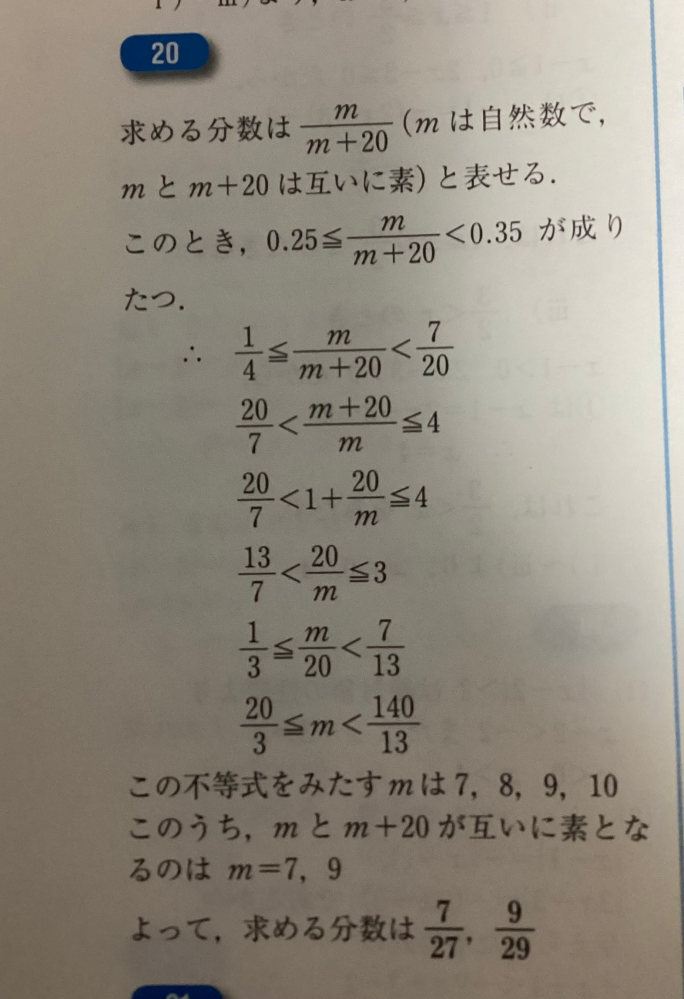 20
求める分数は m/(m+20) (m は自然数で,
m と m+20 は互いに素) と表せる.
このとき, 0.25≦m/(m+20)<0.35 が成り
たつ.
∴ 1/4≦m/(m+20)<7/20
20/7<(m+20)/m≦4
20/7<1+20/m≦4
13/7<20/m≦3
1/3≦m/20<7/13
20/3≦m<140/13
この不等式をみたす m は 7, 8, 9, 10
このうち, m と m+20 が互いに素とな
るのは m=7, 9
よって, 求める分数は 7/27, 9/29